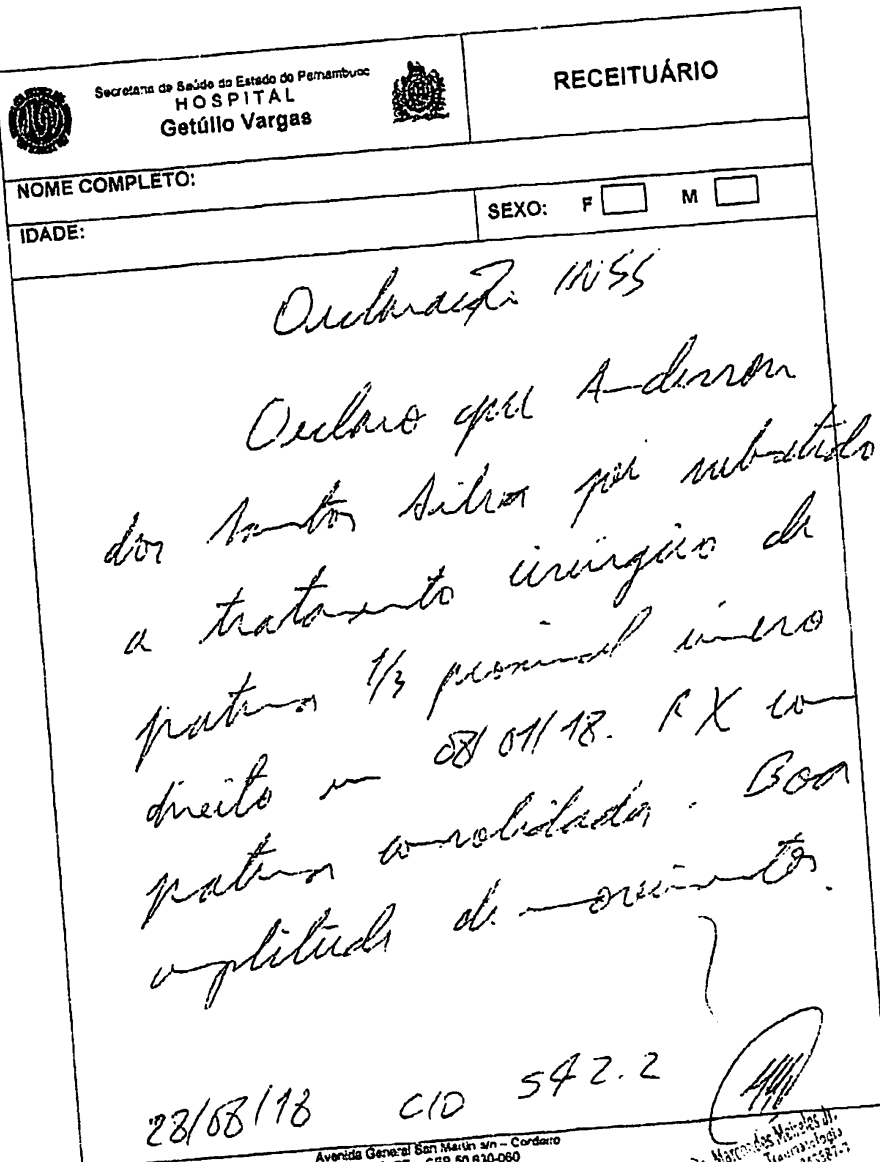 Secretaria de Saúde do Estado de Pernambuco
HOSPITAL
Getúlio Vargas
RECEITUÁRIO
NOME COMPLETO:
IDADE:
SEXO: F M
Declaração INSS
Declaro que Anderson
dos Santos Silva foi submetido
a tratamento cirúrgico de
fratura 1/3 proximal úmero
direito em 08/01/18. RX com
fratura consolidada. Boa
amplitude de movimentos.
28/08/18 CID S42.2
Avenida General San Martin s/n – Cordeiro
CEP 50.630-060
Marcondes Meireles Jr.
Traumatologia